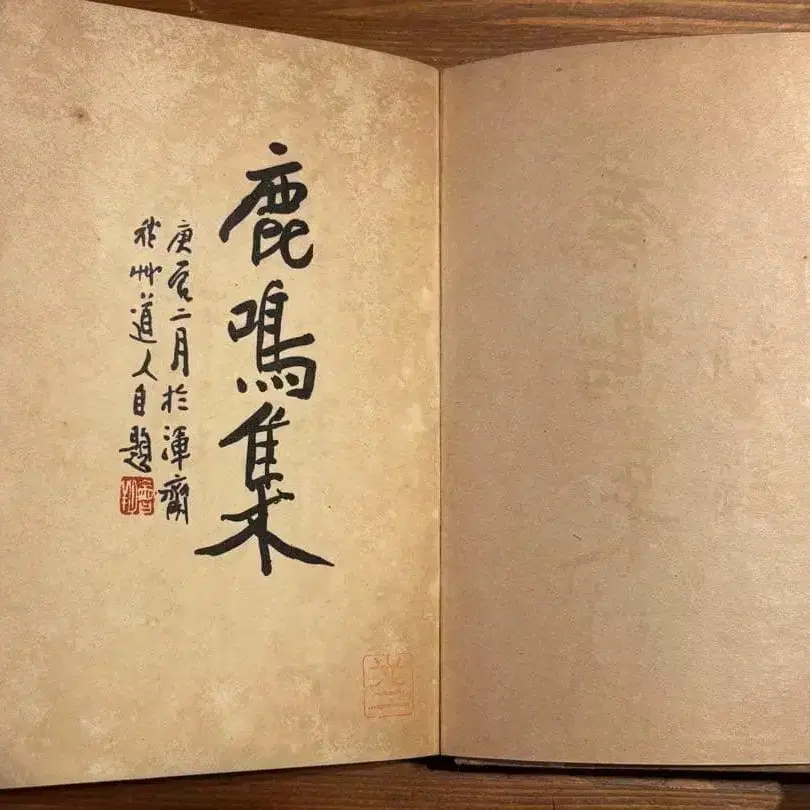 鹿鳴集
庚辰二月於渾齋
秋艸道人自題